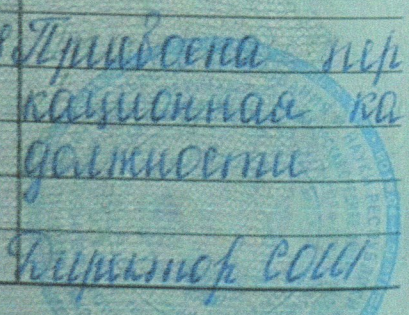 Присвоена пер
кационная ка
должности
Директор СОШ